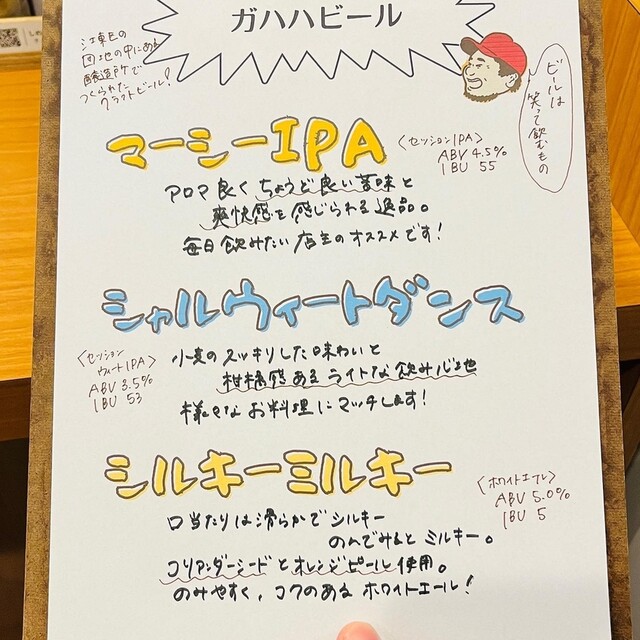 ガハハビール
江東区の
団地の中にある
醸造所で
つくられた
クラフトビール！
ビールは
笑って飲むもの
マーシーIPA
〈セッションIPA〉
ABV 4.5%
IBU 55
アロマ良くちょうど良い苦味と
爽快感を感じられる逸品。
毎日飲みたい店主のオススメです！
シャルウィートダンス
〈セッション
ウィートIPA〉
ABV 3.5%
IBU 53
小麦のスッキリした味わいと
柑橘感あるライトな飲み心地
様々なお料理にマッチします！
シルキーミルキー
〈ホワイトエール〉
ABV 5.0%
IBU 5
口当たりは滑らかでシルキー
のんでみるとミルキー。
コリアンダーシードとオレンジピール使用。
のみやすく、コクのあるホワイトエール！